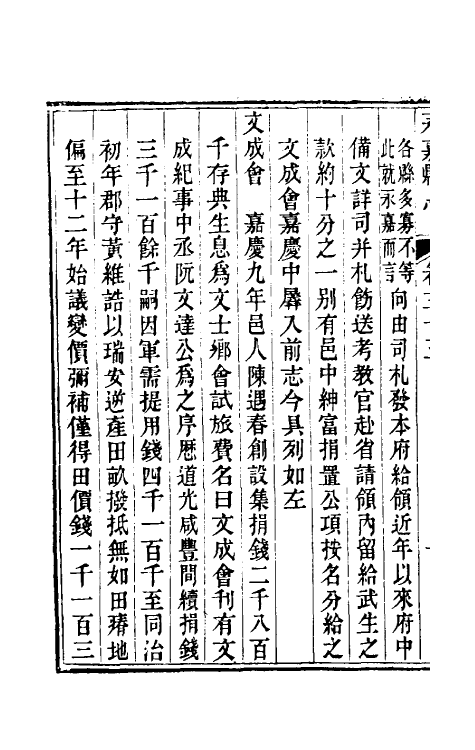 各縣多寡不等
此就永嘉而言
向由司札發本府給領近年以來府中
備文詳司并札飭送考教官赴省請領內留給武生之
款約十分之一別有邑中紳富捐置公項按名分給之
文成會嘉慶中羼入前志今具列如左
文成會　嘉慶九年邑人陳遇春創設集捐錢二千八百
千存典生息爲文士鄉會試旅費名曰文成會刊有文
成紀事中丞阮文達公爲之序歴道光咸豐間續捐錢
三千一百餘千嗣因軍需提用錢四千一百千至同治
初年郡守黃維誥以瑞安逆產田畝撥抵無如田瘠地
偏至十二年始議變價彌補僅得田價錢一千一百三